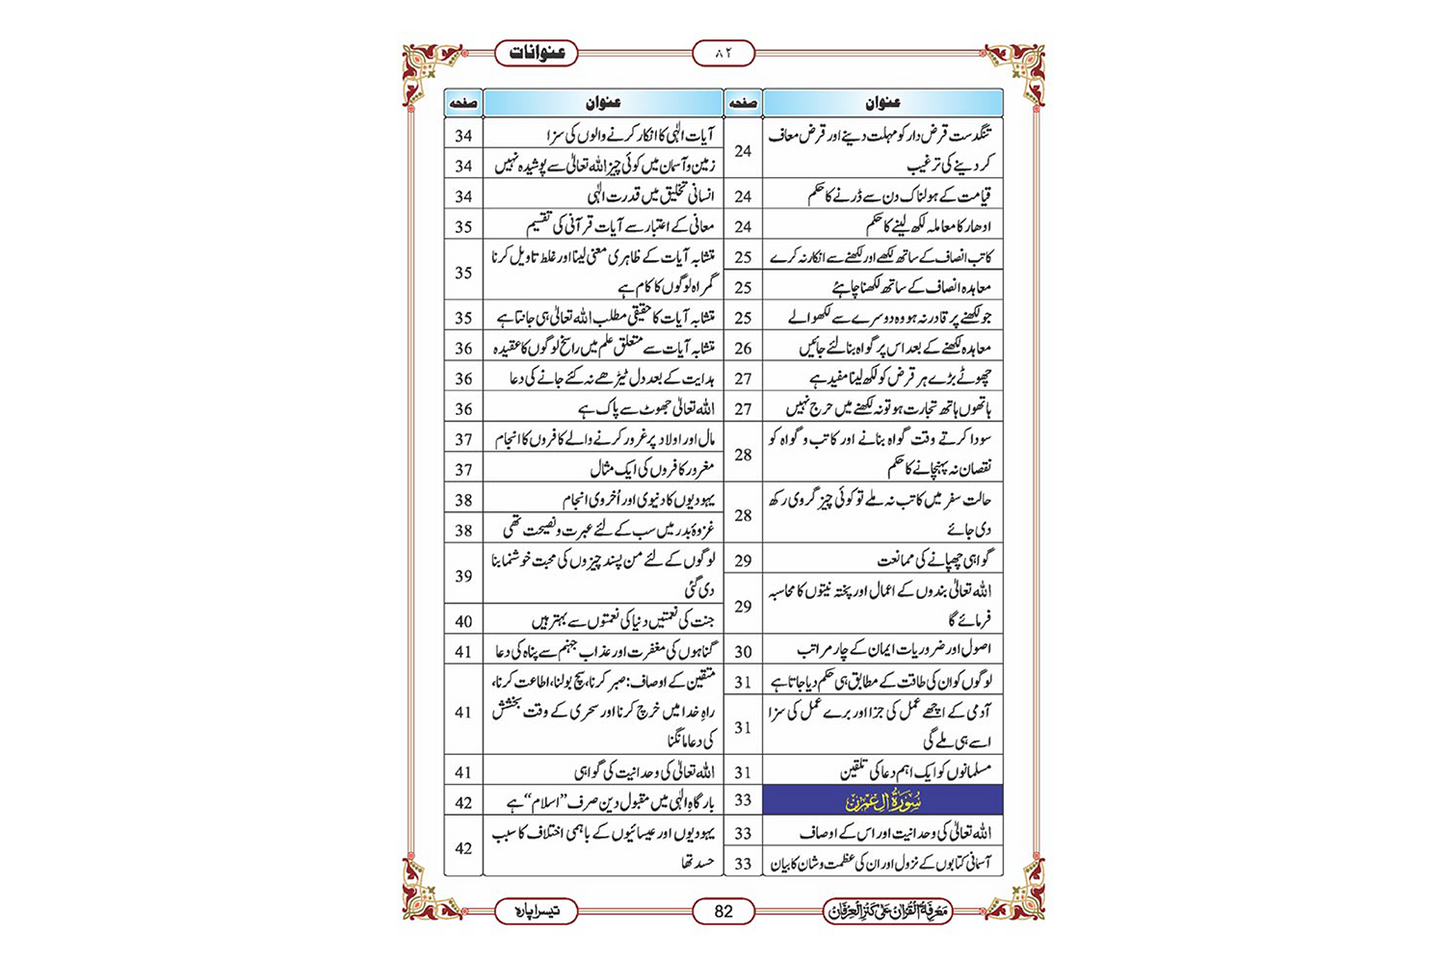 عنوانات
۸۲
عنوان
صفحہ
تنگدست قرض دار کو مہلت دینے اور قرض معاف
کر دینے کی ترغیب
24
قیامت کے ہولناک دن سے ڈرنے کا حکم
24
ادھار کا معاملہ لکھ لینے کا حکم
24
کاتب انصاف کے ساتھ لکھے اور لکھنے سے انکار نہ کرے
25
معاہدہ انصاف کے ساتھ لکھنا چاہئے
25
جو لکھنے پر قادر نہ ہو وہ دوسرے سے لکھوالے
25
معاہدہ لکھنے کے بعد اس پر گواہ بنا لئے جائیں
26
چھوٹے بڑے ہر قرض کو لکھ لینا مفید ہے
27
ہاتھوں ہاتھ تجارت ہو تو نہ لکھنے میں حرج نہیں
27
سودا کرتے وقت گواہ بنانے اور کاتب و گواہ کو
نقصان نہ پہنچانے کا حکم
28
حالت سفر میں کاتب نہ ملے تو کوئی چیز گروی رکھ
دی جائے
28
گواہی چھپانے کی ممانعت
29
اللہ تعالیٰ بندوں کے اعمال اور پختہ نیتوں کا محاسبہ
فرمائے گا
29
اصول اور ضروریات ایمان کے چار مراتب
30
لوگوں کو ان کی طاقت کے مطابق ہی حکم دیا جاتا ہے
31
آدمی کے اچھے عمل کی جزا اور برے عمل کی سزا
اسے ہی ملے گی
31
مسلمانوں کو ایک اہم دعا کی تلقین
31
سُوْرَةُ اٰلِ عِمْرٰن
33
اللہ تعالیٰ کی وحدانیت اور اس کے اوصاف
33
آسمانی کتابوں کے نزول اور ان کی عظمت و شان کا بیان
33
عنوان
صفحہ
آیات الٰہی کا انکار کرنے والوں کی سزا
34
زمین و آسمان میں کوئی چیز اللہ تعالیٰ سے پوشیدہ نہیں
34
انسانی تخلیق میں قدرت الٰہی
34
معانی کے اعتبار سے آیات قرآنی کی تقسیم
35
متشابہ آیات کے ظاہری معنی لینا اور غلط تاویل کرنا
گمراہ لوگوں کا کام ہے
35
متشابہ آیات کا حقیقی مطلب اللہ تعالیٰ ہی جانتا ہے
35
متشابہ آیات سے متعلق علم میں راسخ لوگوں کا عقیدہ
36
ہدایت کے بعد دل ٹیڑھے نہ کئے جانے کی دعا
36
اللہ تعالیٰ جھوٹ سے پاک ہے
36
مال اور اولاد پر غرور کرنے والے کافروں کا انجام
37
مغرور کافروں کی ایک مثال
37
یہودیوں کا دنیوی اور اُخروی انجام
38
غزوۂ بدر میں سب کے لئے عبرت و نصیحت تھی
38
لوگوں کے لئے من پسند چیزوں کی محبت خوشنما بنا
دی گئی
39
جنت کی نعمتیں دنیا کی نعمتوں سے بہتر ہیں
40
گناہوں کی مغفرت اور عذاب جہنم سے پناہ کی دعا
41
متقین کے اوصاف: صبر کرنا، سچ بولنا، اطاعت کرنا،
راہِ خدا میں خرچ کرنا اور سحری کے وقت بخشش
کی دعا مانگنا
41
اللہ تعالیٰ کی وحدانیت کی گواہی
41
بارگاہِ الٰہی میں مقبول دین صرف “اسلام” ہے
42
یہودیوں اور عیسائیوں کے باہمی اختلاف کا سبب
حسد تھا
42
مَعْرِفَۃُ الْقُرْاٰن عَلٰی کَنْزِ الْعِرْفَان
82
تیسرا پارہ